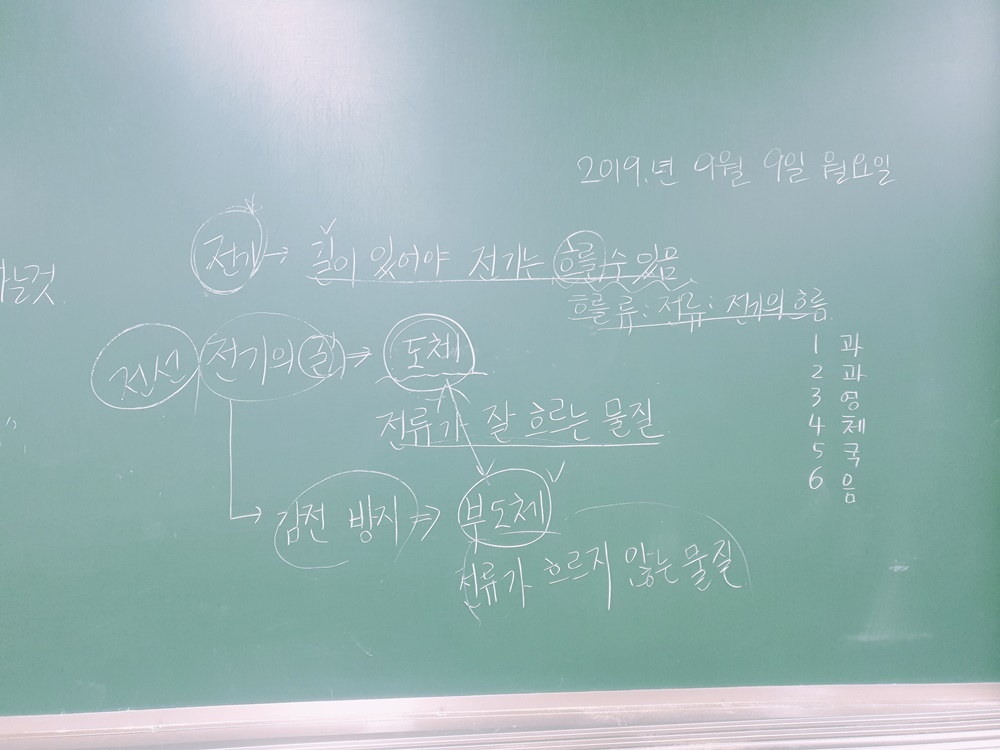 2019.년 9월 9일 월요일
전기→ 길이 있어야 전기는 흐를 수 있음.
흐를 류: 전류: 전기의 흐름.
는것.
전선 전기의 길 ⇒ 도체
전류가 잘 흐르는 물질
감전 방지 ⇒ 부도체
전류가 흐르지 않는 물질
1 과
2 과
3 영
4 체
5 국
6 음